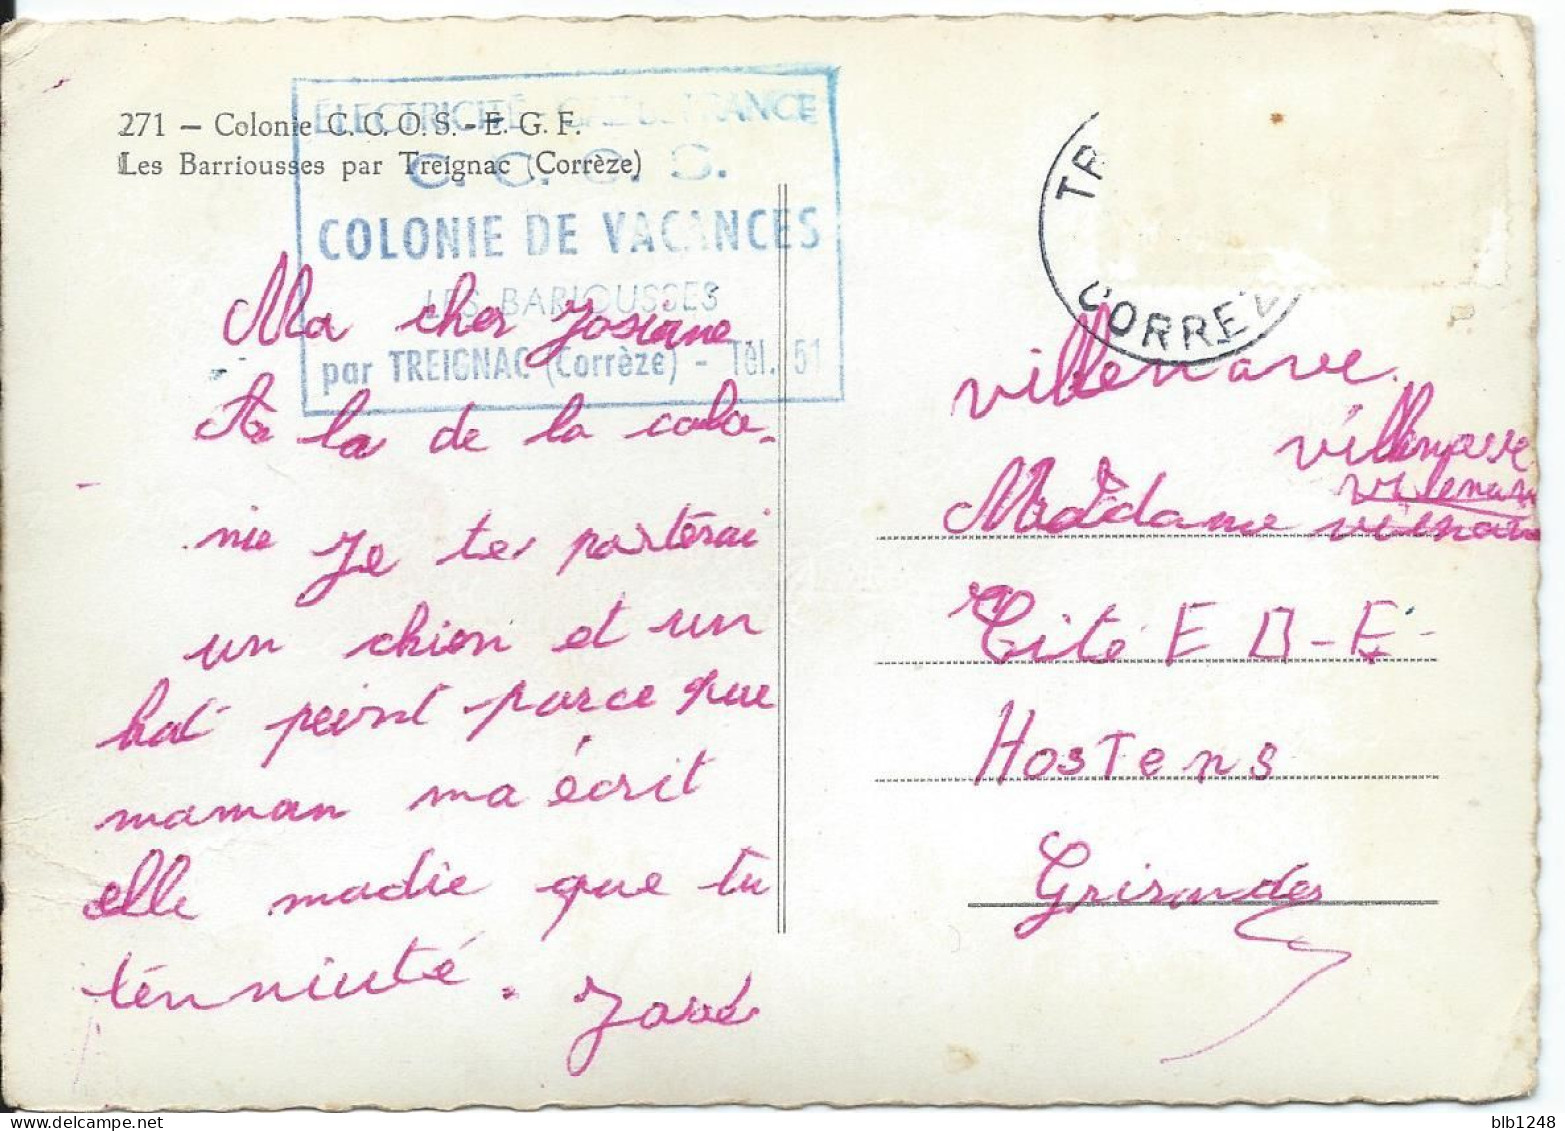 271 — Colonie C.C.O.S.-E.G.F.
Les Barriousses par Treignac (Corrèze)
ÉLECTRICITÉ - GAZ DE FRANCE
C. C. O. S.
COLONIE DE VACANCES
LES BARIOUSSES
par TREIGNAC (Corrèze) - Tél. 51
Ma cher Josiane
A la de la colo-
nie Je te porterai
un chien et un
hat peint parce que
maman ma écrit
elle madie que tu
ténniuté. José
TR
CORRÈZ
villenave.
villenave
villenave
Madame villenave
Cité E D-F
Hostens
Girondes
blb1248